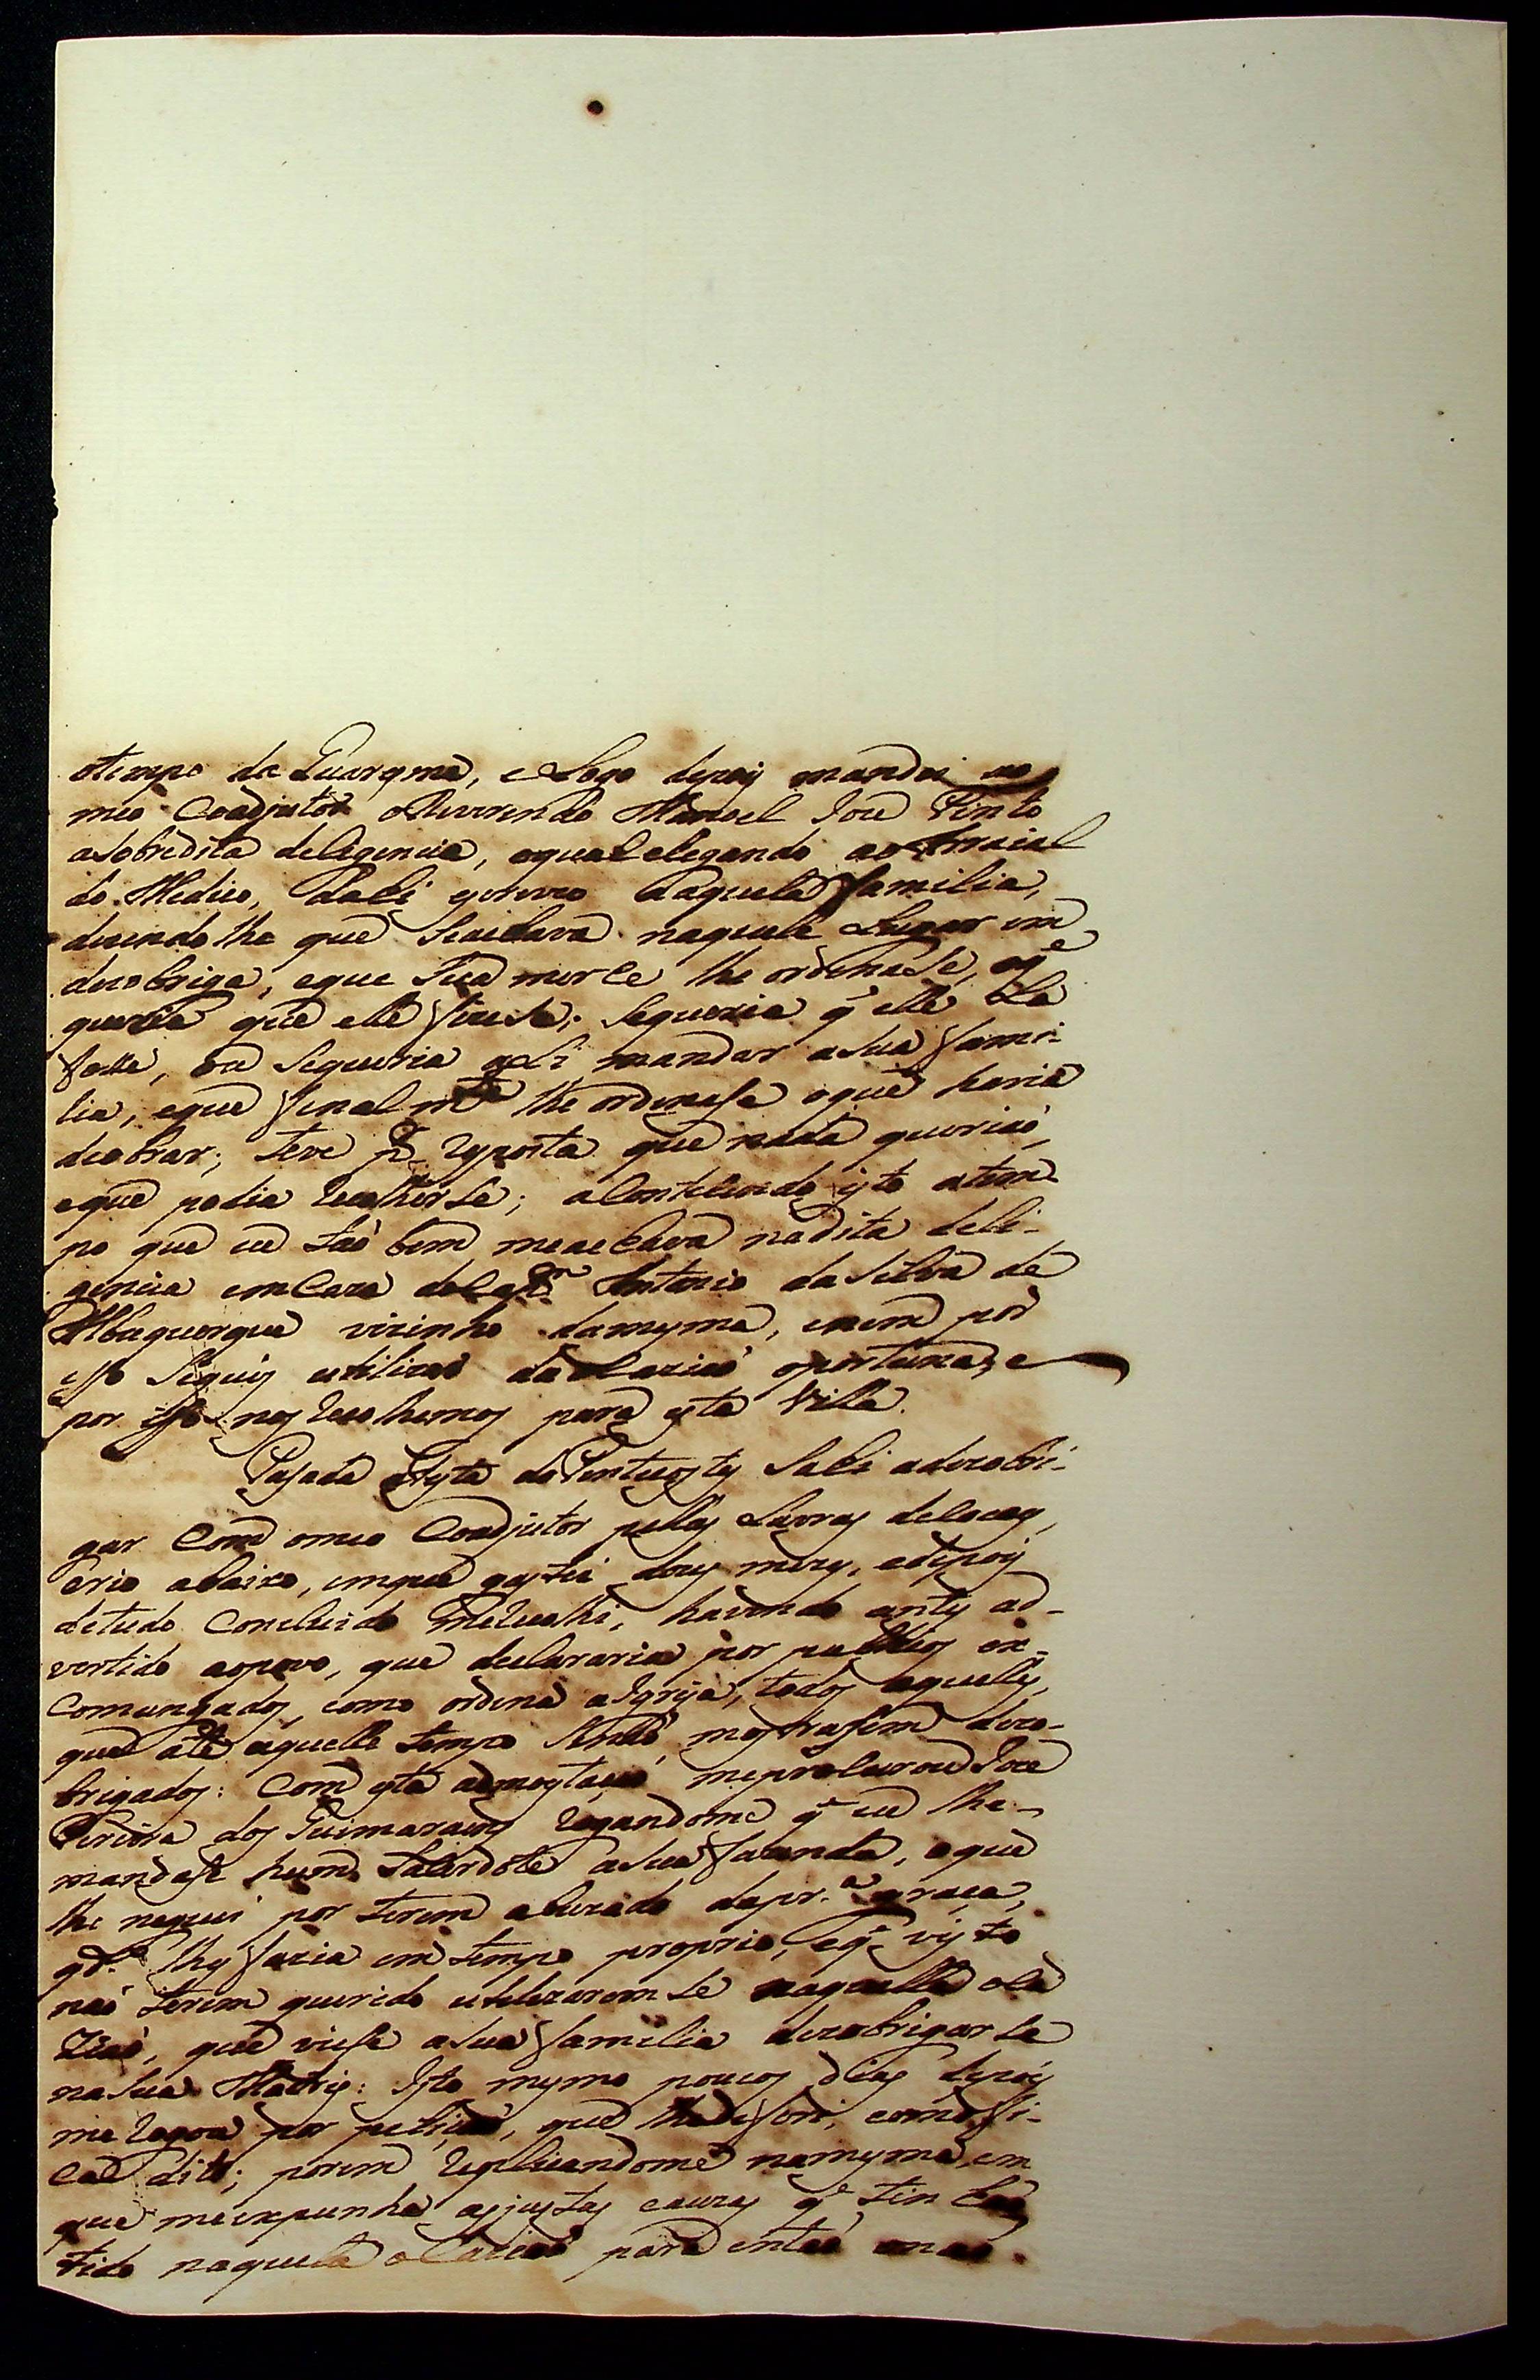 otempo da Quaresma, e Logo depois mandei ao
meo Coadjutor oReverendo Manoel Jose Pinto
aSobredita deligencia, oqual chegando ao
do Medico, dali escreveo àaquela familia,
dizendolhe que Seachava naquele Lugar em
dezobriga, eque Sua merce lhe ordenaSe, oq̃
queria que elle fizeSe; Sequeria q̃ elle Lá
foSse, ou Sequeria ali mandar aSua fami-
lia, eque finalmte lhe ordenaSse oque havia
deobrar; teve pr. resposta que nada queriaõ,
eque podia recolherSe; aContecendo isto atem-
po que eu taõ bem meachava nadita deli-
gencia emCaza doCapm. Antonio daSilva de
Albuquerque vizinho damesma, enem por
iSso Sequis utilizar daOcaziaõ oportuna, e
por iSso nos recolhemos para esta Villa.
PaSada aFesta doPentecostes Sahi adezobri-
gar Com omeo Coadjutor pellas Lavras
erio abaixo, emque gastei dous mezes, edepois
detudo Concluido merecolhi, havendo antes ad-
vertido aopovo, que declararia por publicos ex-
Comungados, como ordena aIgreja, todos aquelles,
que athe aquelle tempo Senaõ mostraSem dezo-
brigados: Com esta admoestaçaõ meprocurou Joze
Pereira dos Guimaraens rogandome q̃ eu lhe
mandaSe hum Sacerdote aSua fazenda, oque
lhe neguei por terem abuzado dapr.a graça,
qd.o lhes fazia em tempo proprio, eq̃ visto
naõ terem querido utelizaremSe naquella oCa-
ziaõ, que vieSse aSua familia dezobrigarSe
naSua Matris: Isto mesmo poucos dias depois
me rogou por petiçaõ, que lhe defori, como fi-
ca dito; porem replicandome namesma, em
que meexpunha asjustas cauzas q̃ tinhaõ
tido naquela oCaziaõ para entaõ onaõ